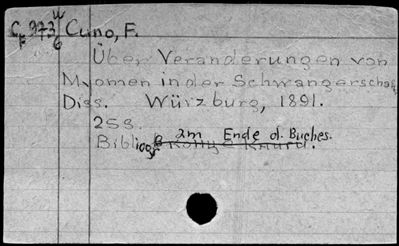 Cuno, F.
Über Veranderungen von
Myomen in der Schwangerschaf
Diss. Würzburg, 1891.
25S.
Bibliogr am Ende d. Buches.